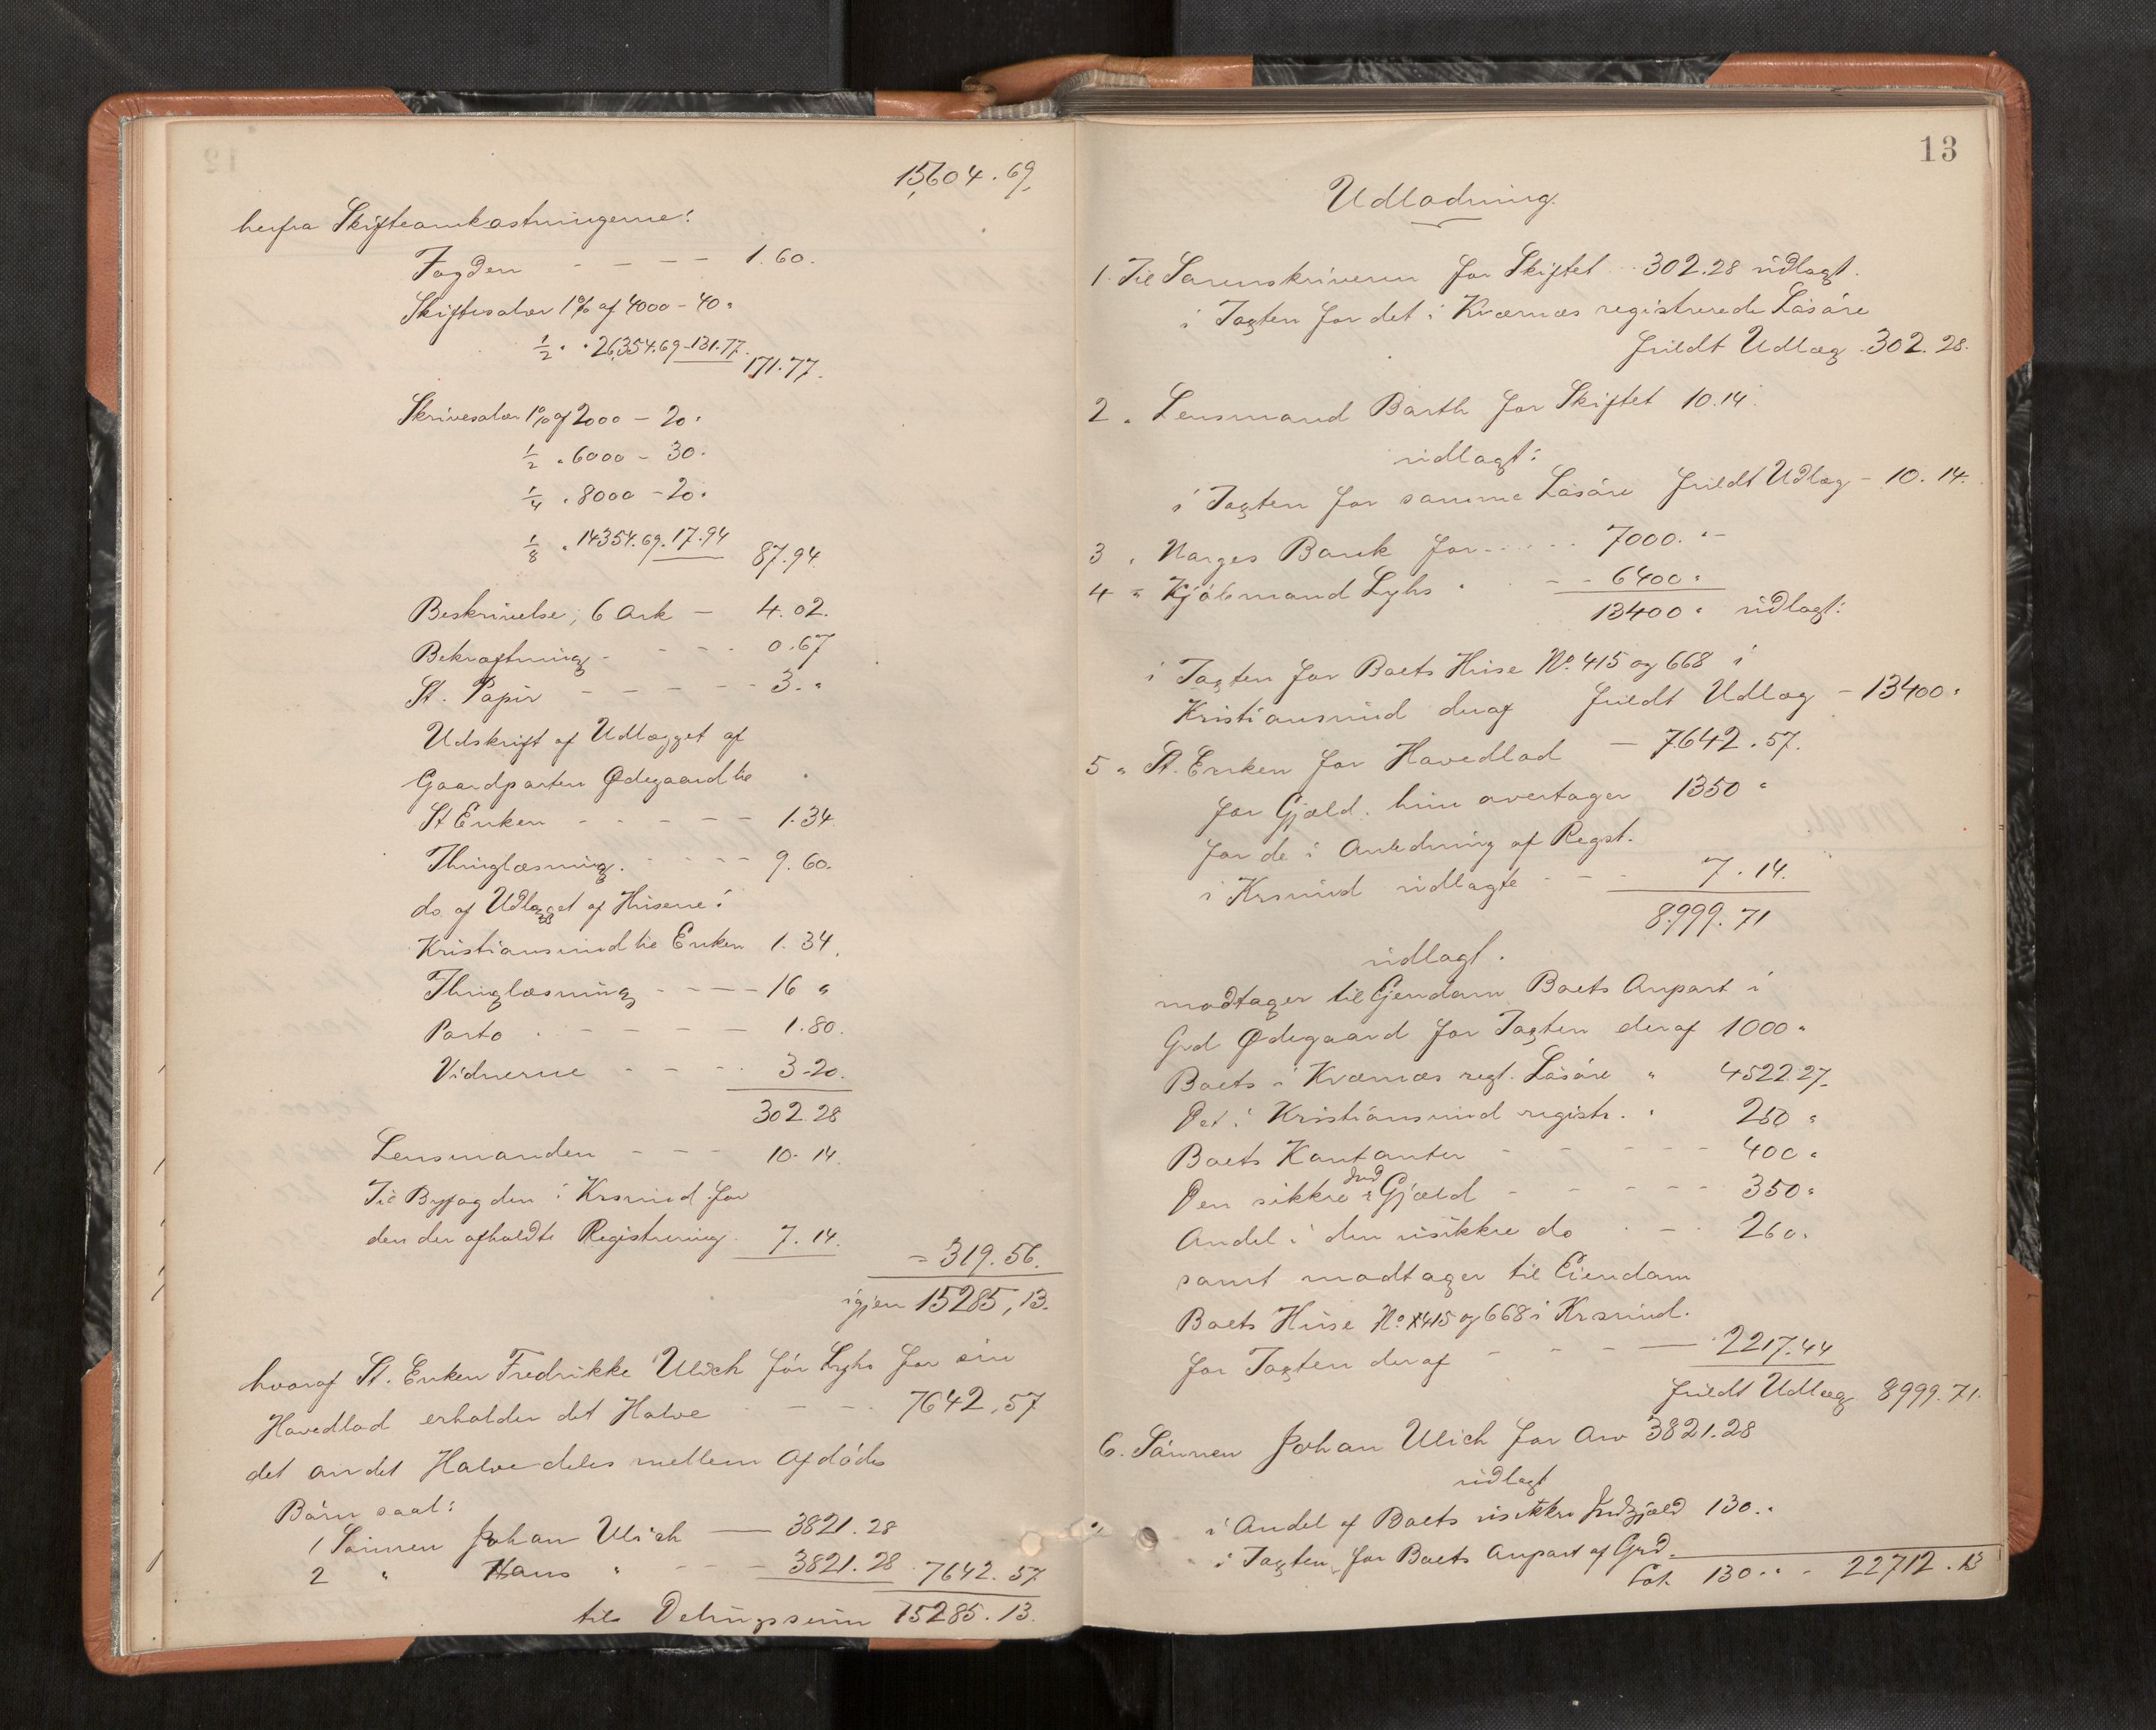 15604.69
herfra Skifteomkostningerne:
Fogden - - - - 1.60.
Skiftesalær 1% af 4000 - 40 "
1/2 " " 26354.69 - 131.77.
171.77.
Skrivesalær 1% af 2000 - 20 "
1/2 " 6000 - 30 "
1/4 " 8000 - 20 "
1/8 " 14354.69. 17.94
87.94.
Beskrivelse, 6 Ark - 4.02.
Bekræftning - - - - 0.67
St. Papir - - - - - 3. "
Udskrift af Udlægget af
Gaardparten Ødegaard til
St Enken - - - - - 1.34
Thinglæsning. - - - - 9.60.
do. af Udlægget af Husene i
Kristianssund til Enken 1.34.
Thinglæsning - - - - 16 "
Porto - - - - - 1.80.
Vidnerne - - - - 3-20.
302.28
Lensmanden - - - 10-14.
Til Byfogden i Krsund for
den der afholdte Registrering. 7.14.
= 319.56.
igjen 15285,13.
hvoraf St. Enken Fredrikke Ulich för Lyhs for sin
Hovedlod erholder det Halve - - - 7642,57
det andet Halve deles mellem Afdödes
Börn saal:
1 Sönnen Johan Ulich — 3821.28
2 " Hans " - - - 3821.28. 7642.57
tils Delingssum 15285.13.
13
Udlodning.
1. Til Sorenskriveren for Skiftet 302.28 udlagt.
i Taxten for det i Kværnæs registrerede Lösöre
fuldt Udlæg. 302.28.
2 " Lensmand Barth for Skiftet 10.14.
udlagt:
i Taxten for samme Lösöre fuldt Udlæg - 10.14.
3 " Norges Bank for - - - - 7000. "
4 " Kjöbmand Lyhs " - - 6400 "
13400 " udlagt:
i Taxten for Boets Huse No. 415 og 668 i
Kristianssund deraf fuldt Udlæg - 13400 "
5 " St. Enken for Hovedlod — 7642.57.
for Gjæld hun overtager 1350 "
for de i Anledning af Regst.
i Krsund udlagte - - - 7.14.
8999.71
udlagt.
modtager til Ejendom Boets Anpart i
Grd Ødegaard for Taxten deraf 1000 "
Boets i Kværnæs regt. Lösöre " 4522.27.
Det i Kristianssund registr. " 250 "
Boets Kontanter - - - - - 400 "
Den sikkre Ind Gjæld - - - - - 350 "
Andel i den usikkre do - - 260.
samt modtager til Eiendom
Boets Huse No. 415 og 668 i Krsund.
for Taxten deraf - - - — 2217.44
fuldt Udlæg 8999.71.
6. Sönnen Johan Ulich for Arv 3821.28
udlagt
i Andel af Boets usikkre Indgjæld 130. "
i Taxten for Boets Anpart af Grd.
Lat. 130. " - 22712.13